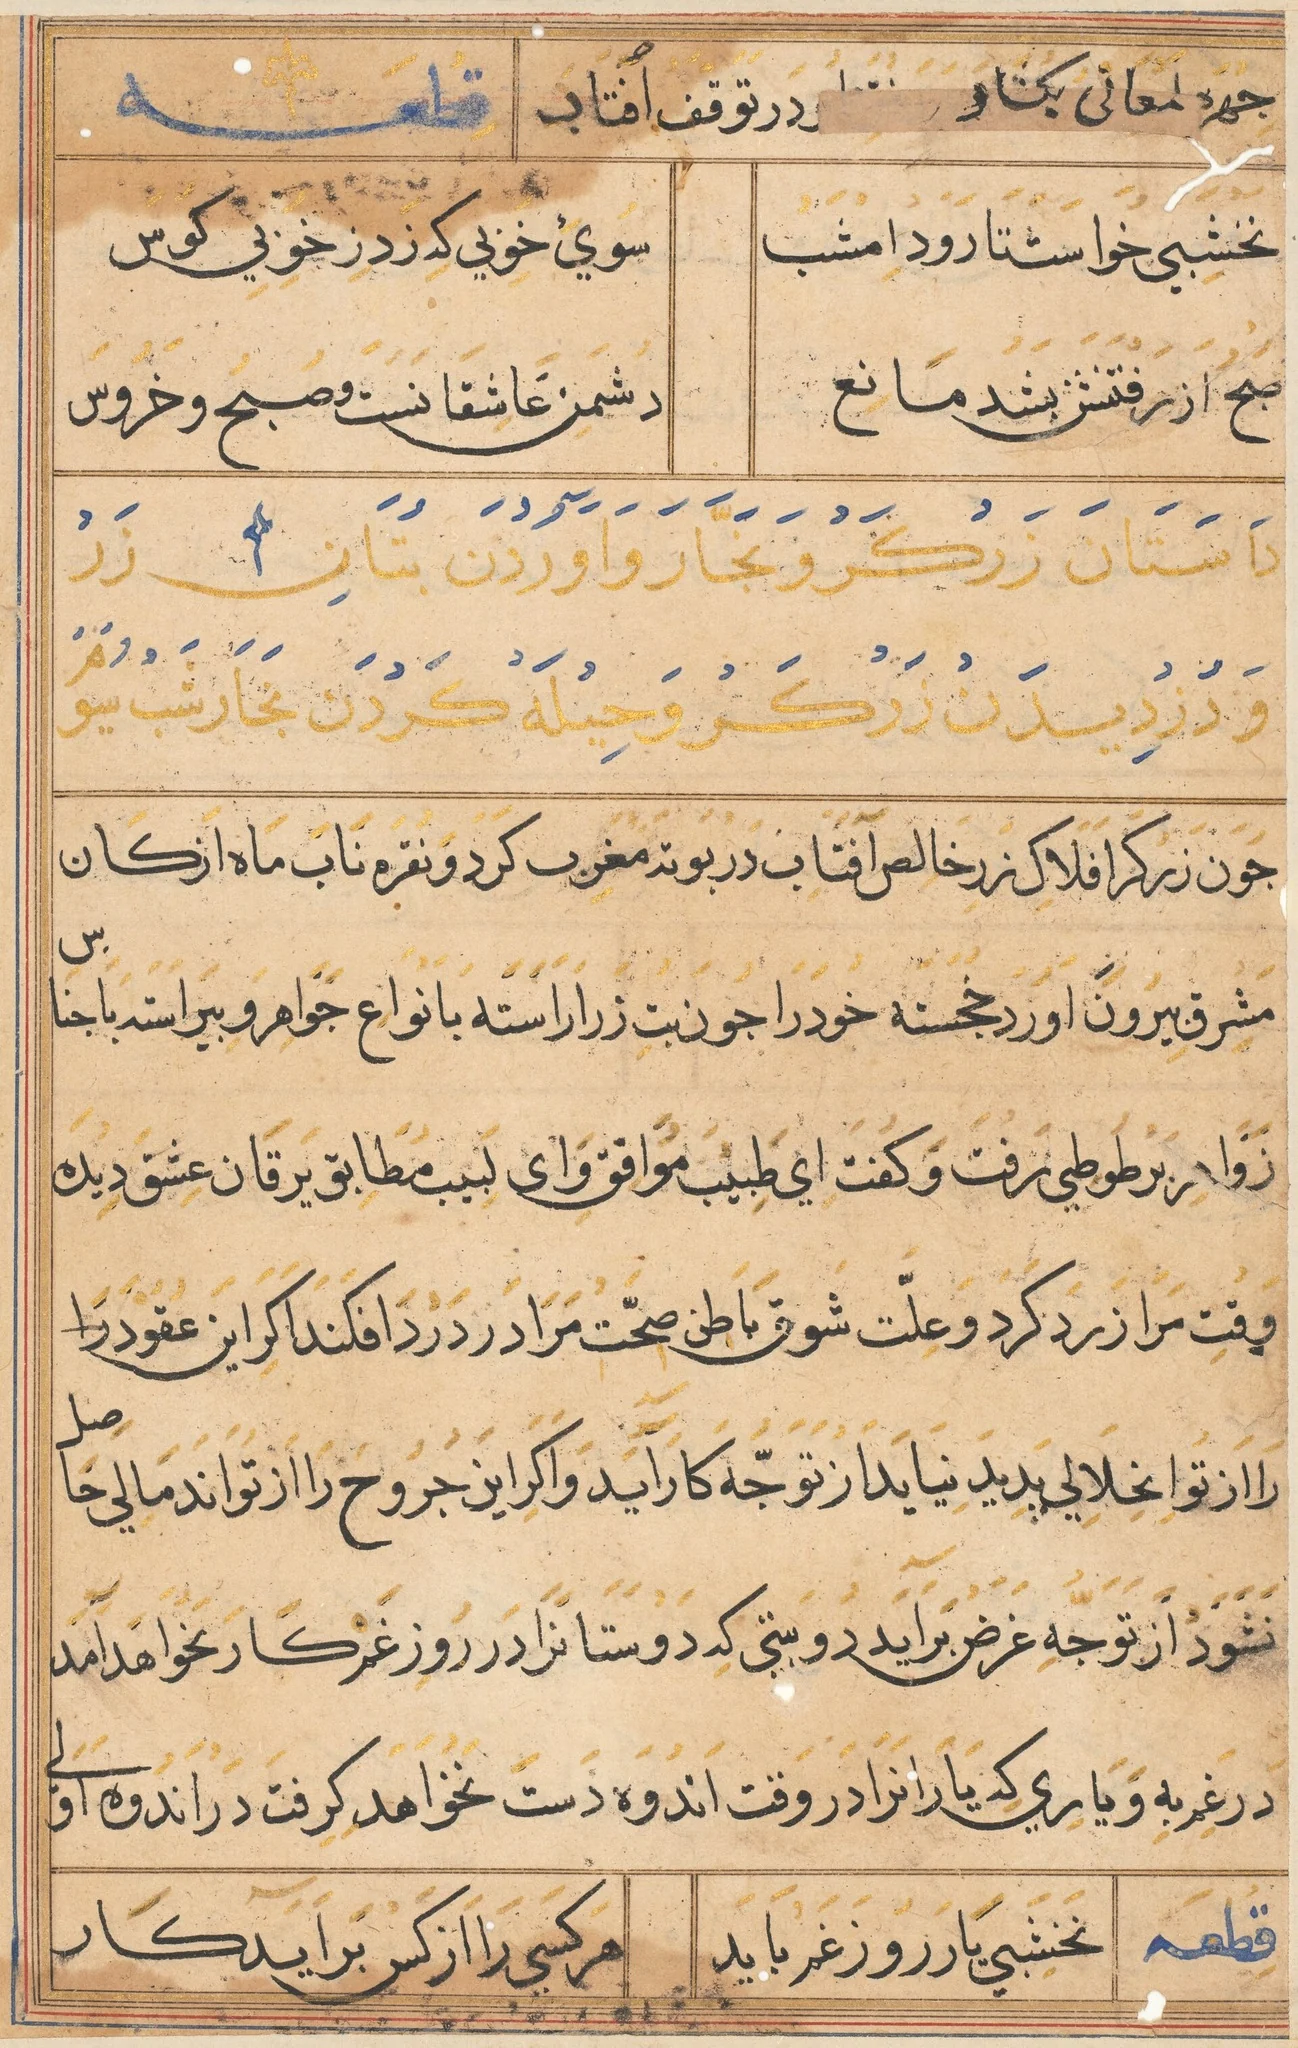 چهره لمعانی بکشاد در توقف افتاد قطعه
نخشبی خواست تا رود امشب سوی خوبی که زد ز خوبی کوس
صبح از رفتنش بشد مانع دشمن عاشقانست و صبح و خروس
داستان زرکر و نجار و اوردن بتان زر
و دزدیدن زرکر و حیله کردن نجار شب سوم
چون زرکر افلاک زر خالص افتاب در بوته مغرب کرد و نقره ناب ماه از کان
مشرق بیرون اورد خجسته خود را چون بت زر اراسته بانواع جواهر و بیراسته باجناس
زواهر بر طوطی رفت و کفت ای طبیب موافق و ای لبیب مطابق یرقان عشق دیده
وقت مرا زرد کرد و علت شوق باطن صحت مرا در درد افکند اکر این عقود را
را از تو انحلالی پدید نیاید از توجه کار آید و اکر این جروح را از تو اندمالی حاصل
نشود از توجه غرض براید دوستی که دوستانرا در روز غم کار نخواهد آمد
در غم به و یاری که یارانرا در وقت اندوه دست نخواهد کرفت در اندوه اولی
قطعه نخشبی یار روز غم باید هر کسی را از کس براید کار